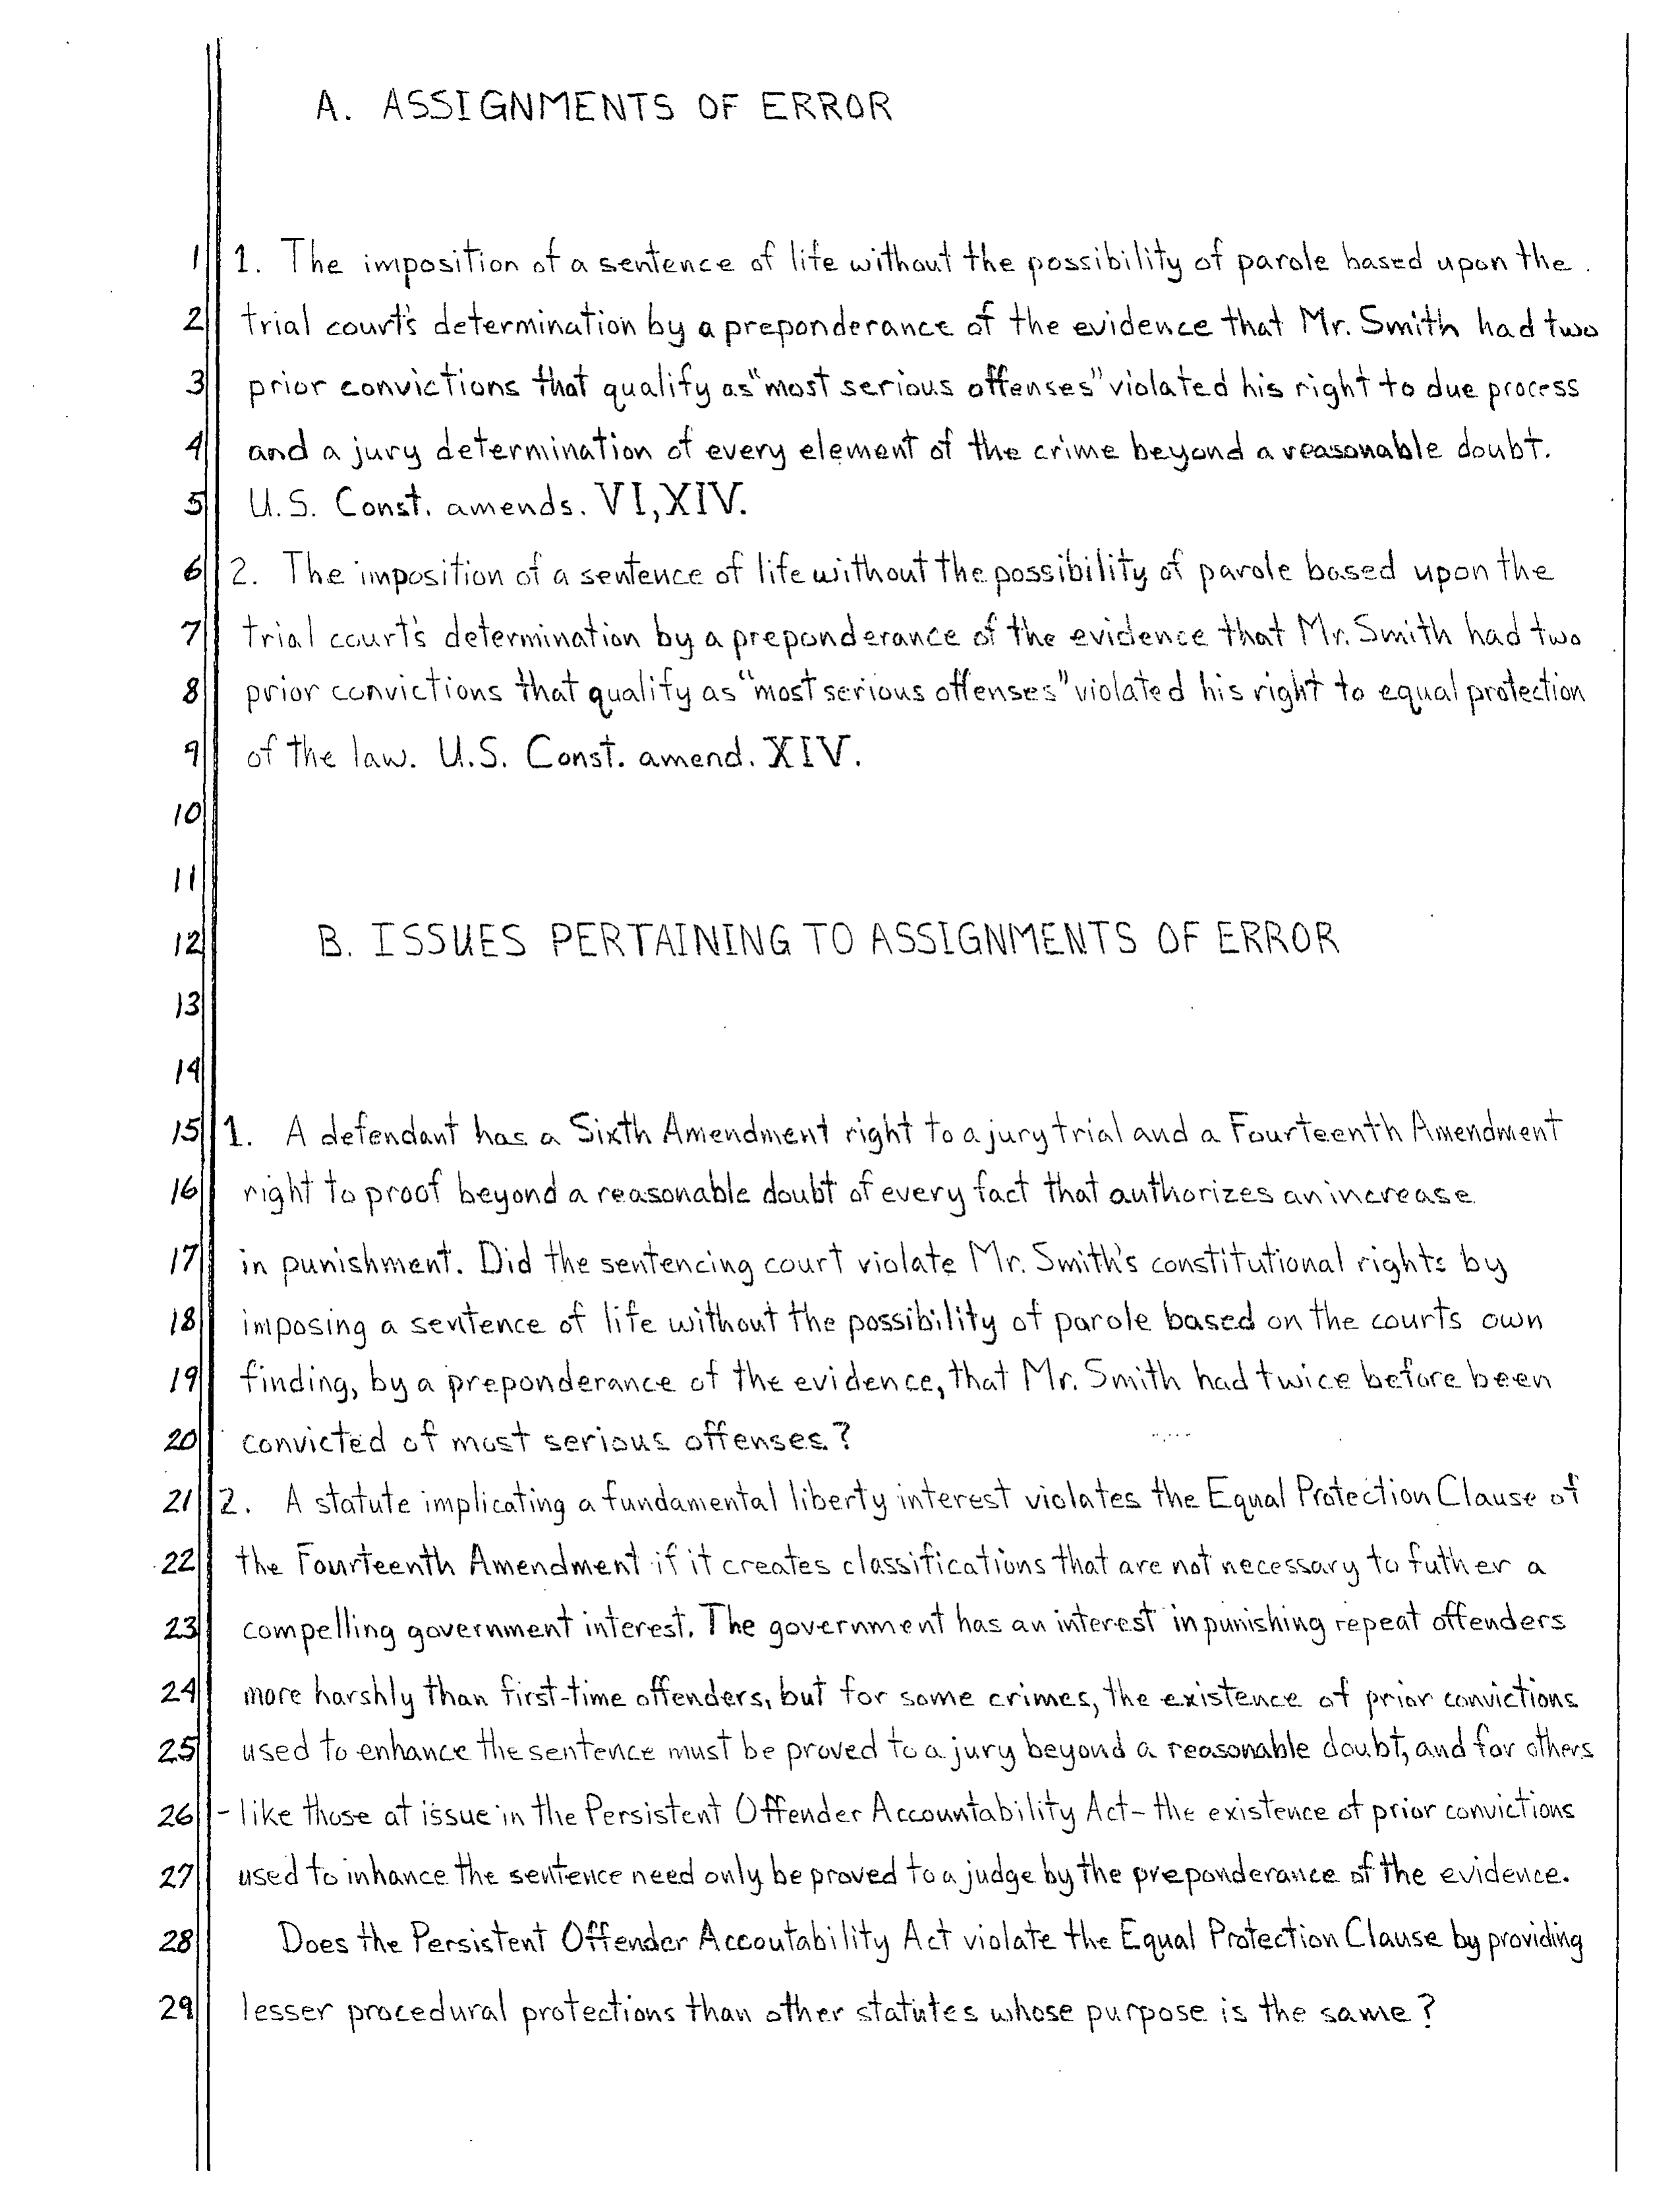 A. ASSIGNMENTS OF ERROR
1 1. The imposition of a sentence of life without the possibility of parole based upon the
2 trial court's determination by a preponderance of the evidence that Mr. Smith had two
3 prior convictions that qualify as "most serious offenses" violated his right to due process
4 and a jury determination of every element of the crime beyond a reasonable doubt.
5 U.S. Const. amends. VI, XIV.
6 2. The imposition of a sentence of life without the possibility of parole based upon the
7 trial court's determination by a preponderance of the evidence that Mr. Smith had two
8 prior convictions that qualify as "most serious offenses" violated his right to equal protection
9 of the law. U.S. Const. amend. XIV.
10
11
12 B. ISSUES PERTAINING TO ASSIGNMENTS OF ERROR
13
14
15 1. A defendant has a Sixth Amendment right to a jury trial and a Fourteenth Amendment
16 right to proof beyond a reasonable doubt of every fact that authorizes an increase
17 in punishment. Did the sentencing court violate Mr. Smith's constitutional rights by
18 imposing a sentence of life without the possibility of parole based on the courts own
19 finding, by a preponderance of the evidence, that Mr. Smith had twice before been
20 convicted of most serious offenses?
21 2. A statute implicating a fundamental liberty interest violates the Equal Protection Clause of
22 the Fourteenth Amendment if it creates classifications that are not necessary to futher a
23 compelling government interest. The government has an interest in punishing repeat offenders
24 more harshly than first-time offenders, but for some crimes, the existence of prior convictions
25 used to enhance the sentence must be proved to a jury beyond a reasonable doubt, and for others
26 - like those at issue in the Persistent Offender Accountability Act - the existence of prior convictions
27 used to inhance the sentence need only be proved to a judge by the preponderance of the evidence.
28 Does the Persistent Offender Accoutability Act violate the Equal Protection Clause by providing
29 lesser procedural protections than other statutes whose purpose is the same?